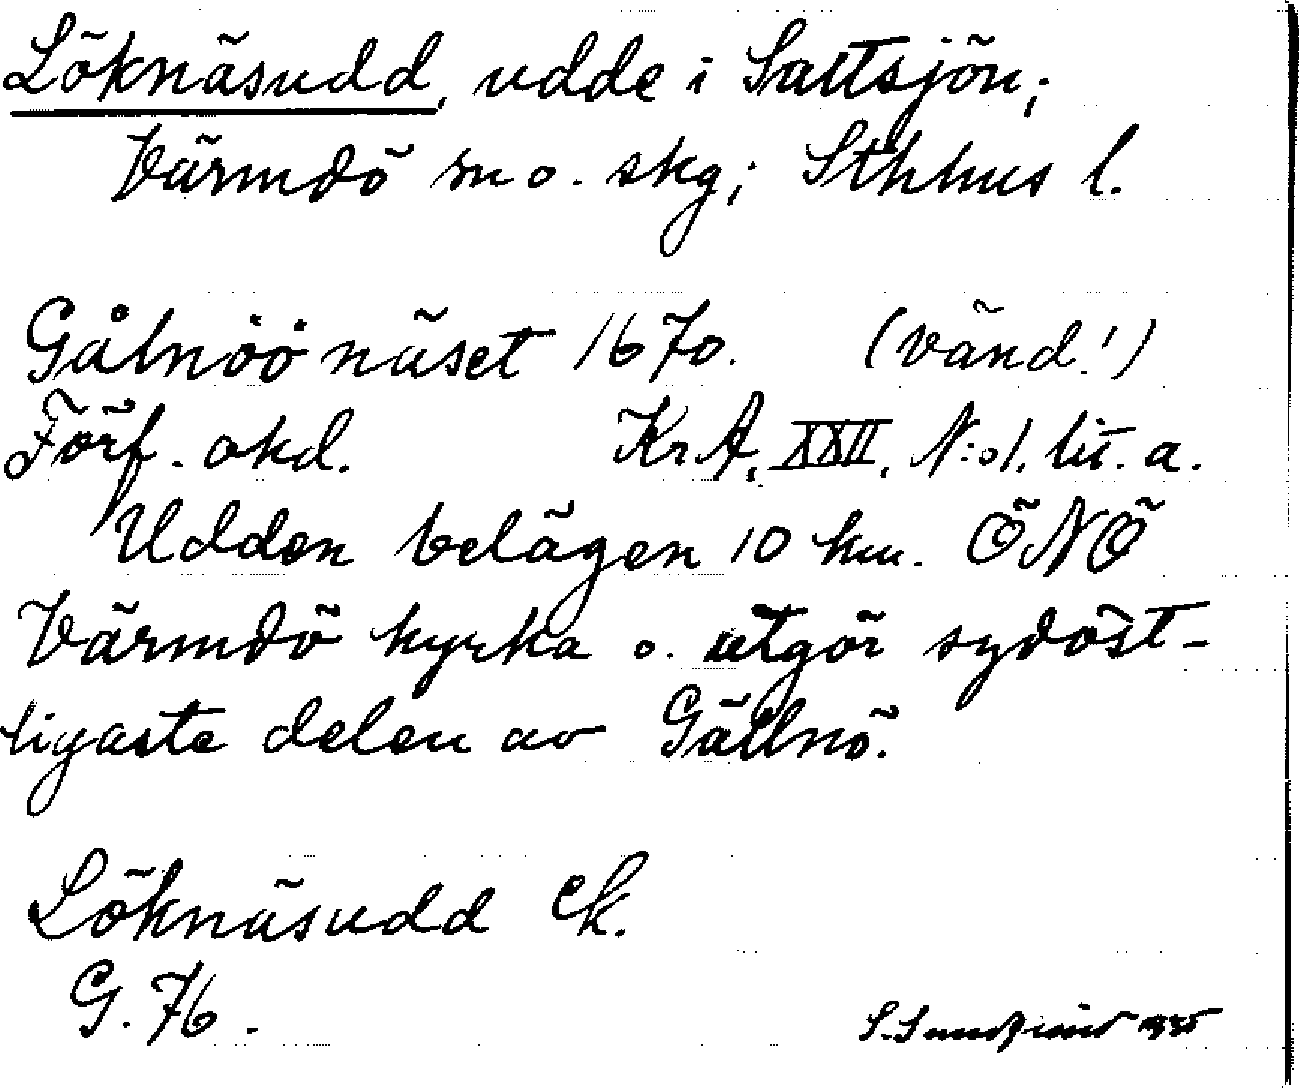 Löknäsudd, udde i Saltsjön;
Värmdö sn o. skg; Sthlms l.
Gålnöö näset 1670. (vänd!)
Förf. okd. KrA, XXII, N:o 1. lit. a.
Udden belägen 10 km. ÖNÖ
Värmdö kyrka o. utgör sydost-
ligaste delen av Gällnö.
Löknäsudd Ek.
G. 76.